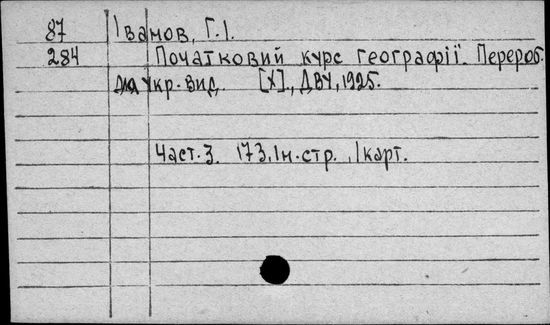 87 Іванов, Г.І.
284 Початковий курс географії. Перероб.
для укр. вид. [Х]., ДВУ, 1925.
Част. 3. 173, 1 н. стр., 1 карт.